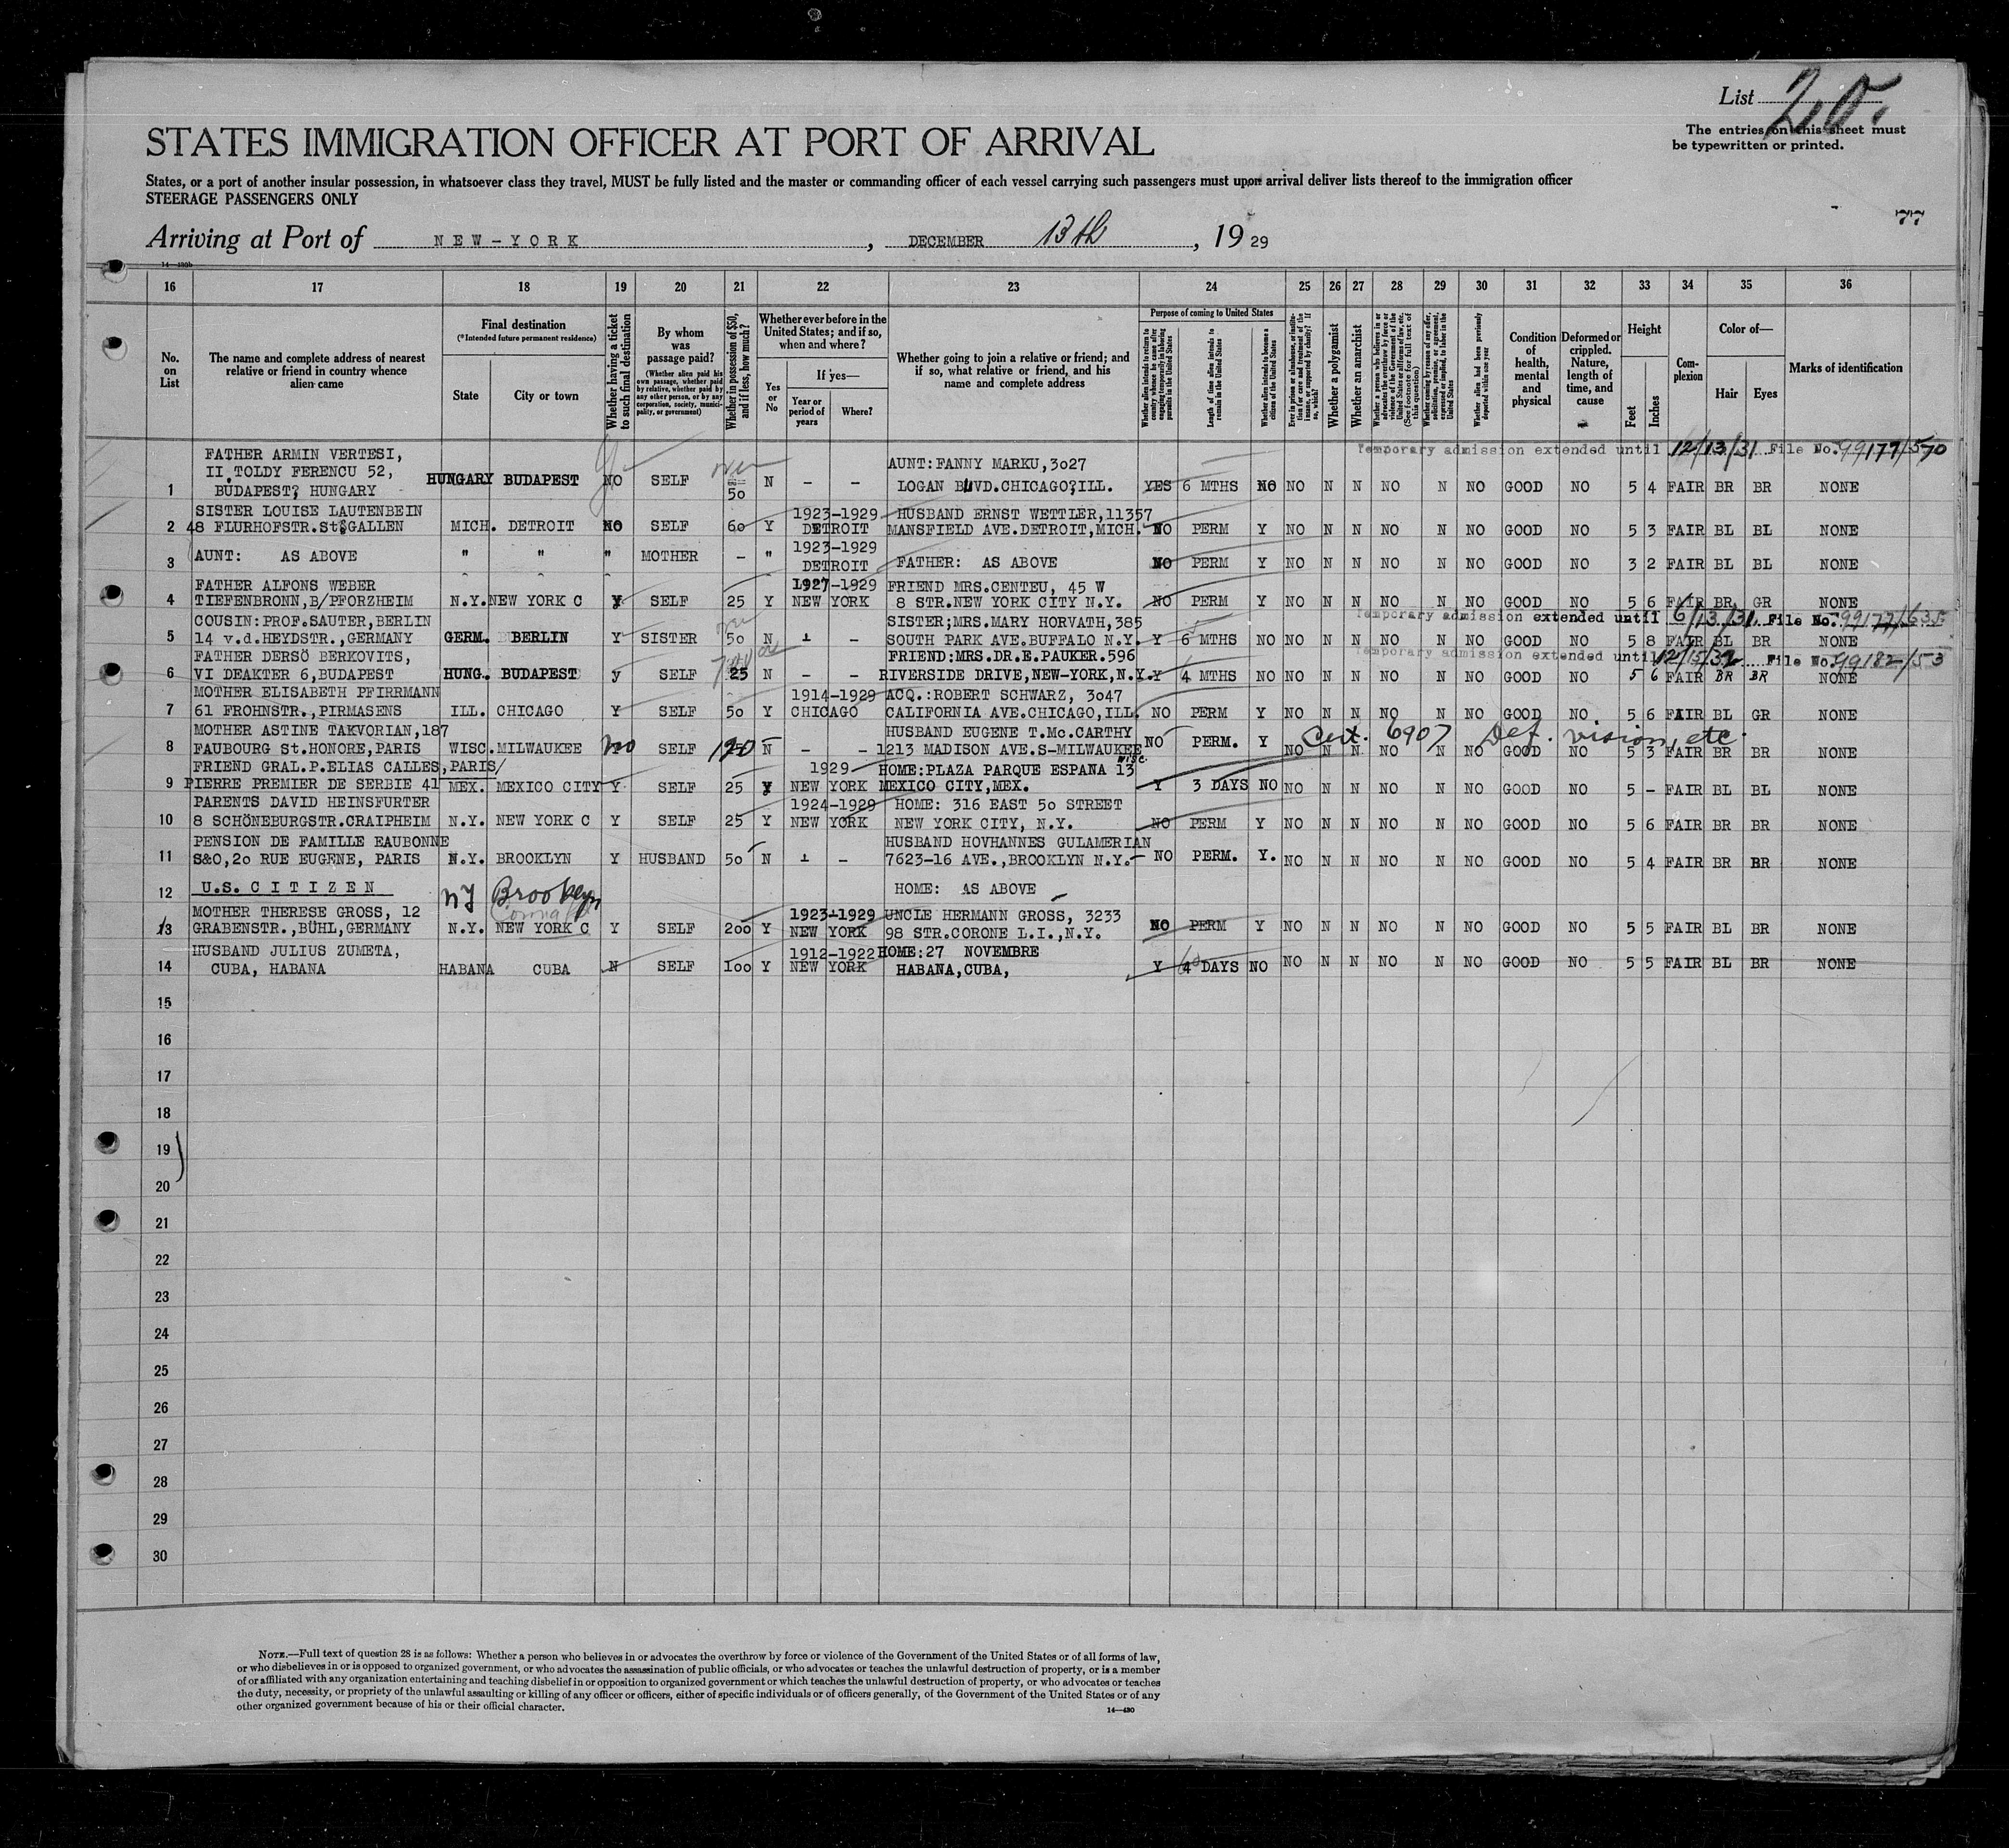 List 20.
The entries on this sheet must
be typewritten or printed.
STATES IMMIGRATION OFFICER AT PORT OF ARRIVAL
States, or a port of another insular possession, in whatsoever class they travel, MUST be fully listed and the master or commanding officer of each vessel carrying such passengers must upon arrival deliver lists thereof to the immigration officer
STEERAGE PASSENGERS ONLY
77
Arriving at Port of NEW-YORK, DECEMBER 13th, 19 29
14—430b
16 17 18 19 20 21 22 23 24 25 26 27 28 29 30 31 32 33 34 35 36
No. on List
The name and complete address of nearest relative or friend in country whence alien came
Final destination
(*Intended future permanent residence)
State
City or town
Whether having a ticket to such final destination
By whom was passage paid?
(Whether alien paid his own passage, whether paid by relative, whether paid by any other person, or by any corporation, society, municipality, or government)
Whether in possession of $50, and if less, how much?
Whether ever before in the United States; and if so, when and where?
Yes or No
If yes—
Year or period of years
Where?
Whether going to join a relative or friend; and if so, what relative or friend, and his name and complete address
Purpose of coming to United States
Length of time alien intends to remain in the United States
Whether alien intends to become a citizen of the United States
Whether a polygamist
Whether an anarchist
Whether alien had been previously deported within one year
Condition of health, mental and physical
Deformed or crippled. Nature, length of time, and cause
Height
Feet
Inches
Complexion
Color of—
Hair
Eyes
Marks of identification
Temporary admission extended until 12/13/31 File No. 99177/570
FATHER ARMIN VERTESI, AUNT:FANNY MARKU,3027
II.TOLDY FERENCU 52, HUNGARY BUDAPEST
1 BUDAPEST? HUNGARY NO SELF 50 N - - LOGAN BLVD.CHICAGO?ILL. YES 6 MTHS NO NO N N NO N NO GOOD NO 5 4 FAIR BR BR NONE
SISTER LOUISE LAUTENBEIN 1923-1929 HUSBAND ERNST WETTLER,11357
2 48 FLURHOFSTR.St.GALLEN MICH. DETROIT NO SELF 60 Y DETROIT MANSFIELD AVE.DETROIT,MICH. NO PERM Y NO N N NO N NO GOOD NO 5 3 FAIR BL BL NONE
1923-1929
3 AUNT: AS ABOVE " " " MOTHER - " DETROIT FATHER: AS ABOVE NO PERM Y NO N N NO N NO GOOD NO 3 2 FAIR BL BL NONE
FATHER ALFONS WEBER 1927-1929 FRIEND MRS.CENTEU, 45 W
4 TIEFENBRONN,B/PFORZHEIM N.Y. NEW YORK C Y SELF 25 Y NEW YORK 8 STR.NEW YORK CITY N.Y. NO PERM Y NO N N NO N NO GOOD NO 5 6 FAIR BR GR NONE
Temporary admission extended until 6/13/31 File No. 99177/635
COUSIN:PROF.SAUTER,BERLIN SISTER;MRS.MARY HORVATH,385
5 14 v.d.HEYDSTR.,GERMANY GERM. BERLIN Y SISTER 50 N - - SOUTH PARK AVE.BUFFALO N.Y. Y 6 MTHS NO NO N N NO N NO GOOD NO 5 8 FAIR BL BR NONE
Temporary admission extended until 12/15/32 File No. 99182/53
FATHER DERSÖ BERKOVITS, FRIEND:MRS.DR.E.PAUKER.596
6 VI DEAKTER 6,BUDAPEST HUNG. BUDAPEST y SELF 25 N - - RIVERSIDE DRIVE,NEW-YORK,N.Y. Y 4 MTHS NO NO N N NO N NO GOOD NO 5 6 FAIR BR BR NONE
MOTHER ELISABETH PFIRRMANN 1914-1929 ACQ.:ROBERT SCHWARZ, 3047
7 61 FROHNSTR.,PIRMASENS ILL. CHICAGO Y SELF 50 Y CHICAGO CALIFORNIA AVE.CHICAGO,ILL. NO PERM Y NO N N NO N NO GOOD NO 5 6 FAIR BL GR NONE
MOTHER ASTINE TAKVORIAN,187 HUSBAND EUGENE T.Mc.CARTHY Cert. 6907 Def. vision, etc.
8 FAUBOURG St.HONORE,PARIS WISC. MILWAUKEE no SELF 120 N - - 1213 MADISON AVE.S-MILWAUKEE wisc. NO PERM. Y NO N N NO N NO GOOD NO 5 3 FAIR BR BR NONE
FRIEND GRAL.P.ELIAS CALLES,PARIS/ 1929 HOME:PLAZA PARQUE ESPANA 13
9 PIERRE PREMIER DE SERBIE 41 MEX. MEXICO CITY Y SELF 25 y NEW YORK MEXICO CITY,MEX. Y 3 DAYS NO NO N N NO N NO GOOD NO 5 - FAIR BL BL NONE
PARENTS DAVID HEINSFURTER 1924-1929 HOME: 316 EAST 50 STREET
10 8 SCHÖNEBURGSTR.CRAIPHEIM N.Y. NEW YORK C Y SELF 25 Y NEW YORK NEW YORK CITY, N.Y. NO PERM Y NO N N NO N NO GOOD NO 5 6 FAIR BR BR NONE
PENSION DE FAMILLE EAUBONNE HUSBAND HOVHANNES GULAMERIAN
11 S&O,20 RUE EUGENE, PARIS N.Y. BROOKLYN Y HUSBAND 50 N - - 7623-16 AVE.,BROOKLYN N.Y. NO PERM. Y. NO N N NO N NO GOOD NO 5 4 FAIR BR BR NONE
12 U.S. CITIZEN NY Brooklyn HOME: AS ABOVE
MOTHER THERESE GROSS, 12 Corona 1923-1929 UNCLE HERMANN GROSS, 3233
13 GRABENSTR.,BÜHL,GERMANY N.Y. NEW YORK C Y SELF 200 Y NEW YORK 98 STR.CORONE L.I.,N.Y. NO PERM Y NO N N NO N NO GOOD NO 5 5 FAIR BL BR NONE
HUSBAND JULIUS ZUMETA, 1912-1922 HOME:27 NOVEMBRE
14 CUBA, HABANA HABANA CUBA N SELF 100 Y NEW YORK HABANA,CUBA, Y 60 DAYS NO NO N N NO N NO GOOD NO 5 5 FAIR BL BR NONE
15
16
17
18
19
20
21
22
23
24
25
26
27
28
29
30
NOTE.—Full text of question 28 is as follows: Whether a person who believes in or advocates the overthrow by force or violence of the Government of the United States or of all forms of law,
or who disbelieves in or is opposed to organized government, or who advocates the assassination of public officials, or who advocates or teaches the unlawful destruction of property, or is a member
of or affiliated with any organization entertaining and teaching disbelief in or opposition to organized government or which teaches the unlawful destruction of property, or who advocates or teaches
the duty, necessity, or propriety of the unlawful assaulting or killing of any officer or officers, either of specific individuals or of officers generally, of the Government of the United States or of any
other organized government because of his or their official character.
14—430